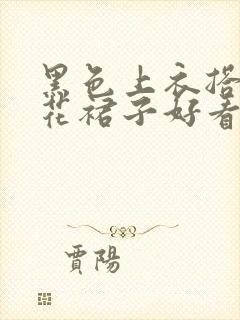 黑色上衣搭
花裙子好看
賈陽